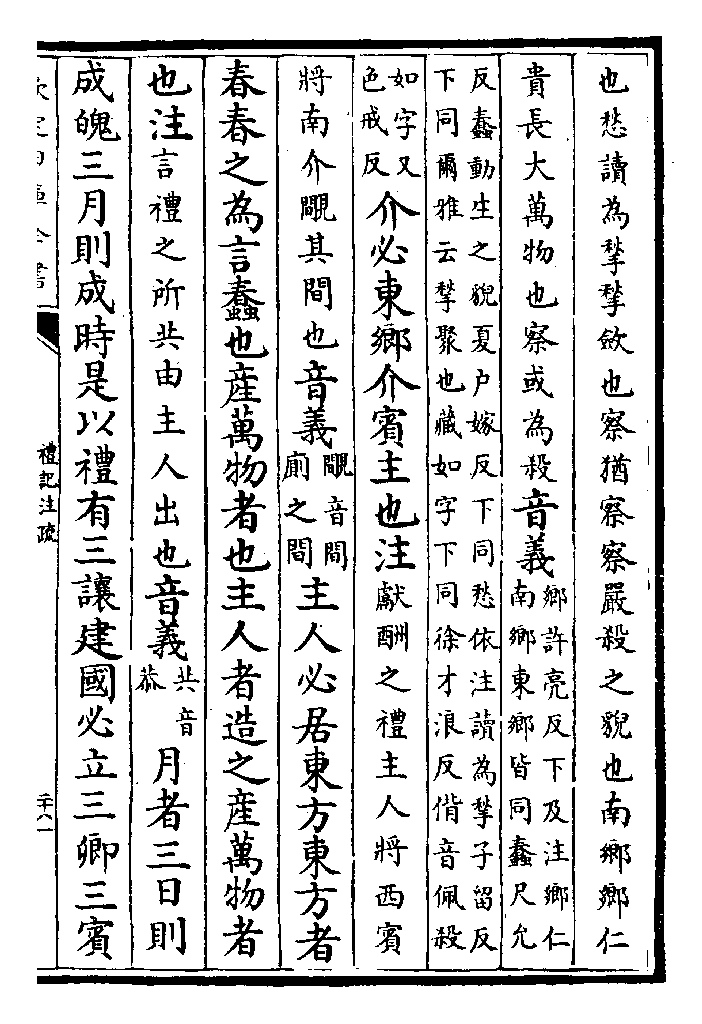 也愁讀為揫揫斂也察猶察察嚴殺之貌也南鄉鄉仁
貴長大萬物也察或為殺音義鄉許亮反下及注鄉仁
南鄉東鄉皆同蠢尺允
反蠢動生之貌夏户嫁反下同愁依注讀為揫子留反
下同爾雅云揫聚也藏如字下同徐才浪反偝音佩殺
如字又
色戒反介必東鄉介賓主也注獻酬之禮主人將西賓
將南介覸其間也音義覸音間
廁之間主人必居東方東方者
春春之為言蠢也産萬物者也主人者造之産萬物者
也注言禮之所共由主人出也音義共音
恭月者三日則
成魄三月則成時是以禮有三讓建國必立三卿三賓
禮記注疏